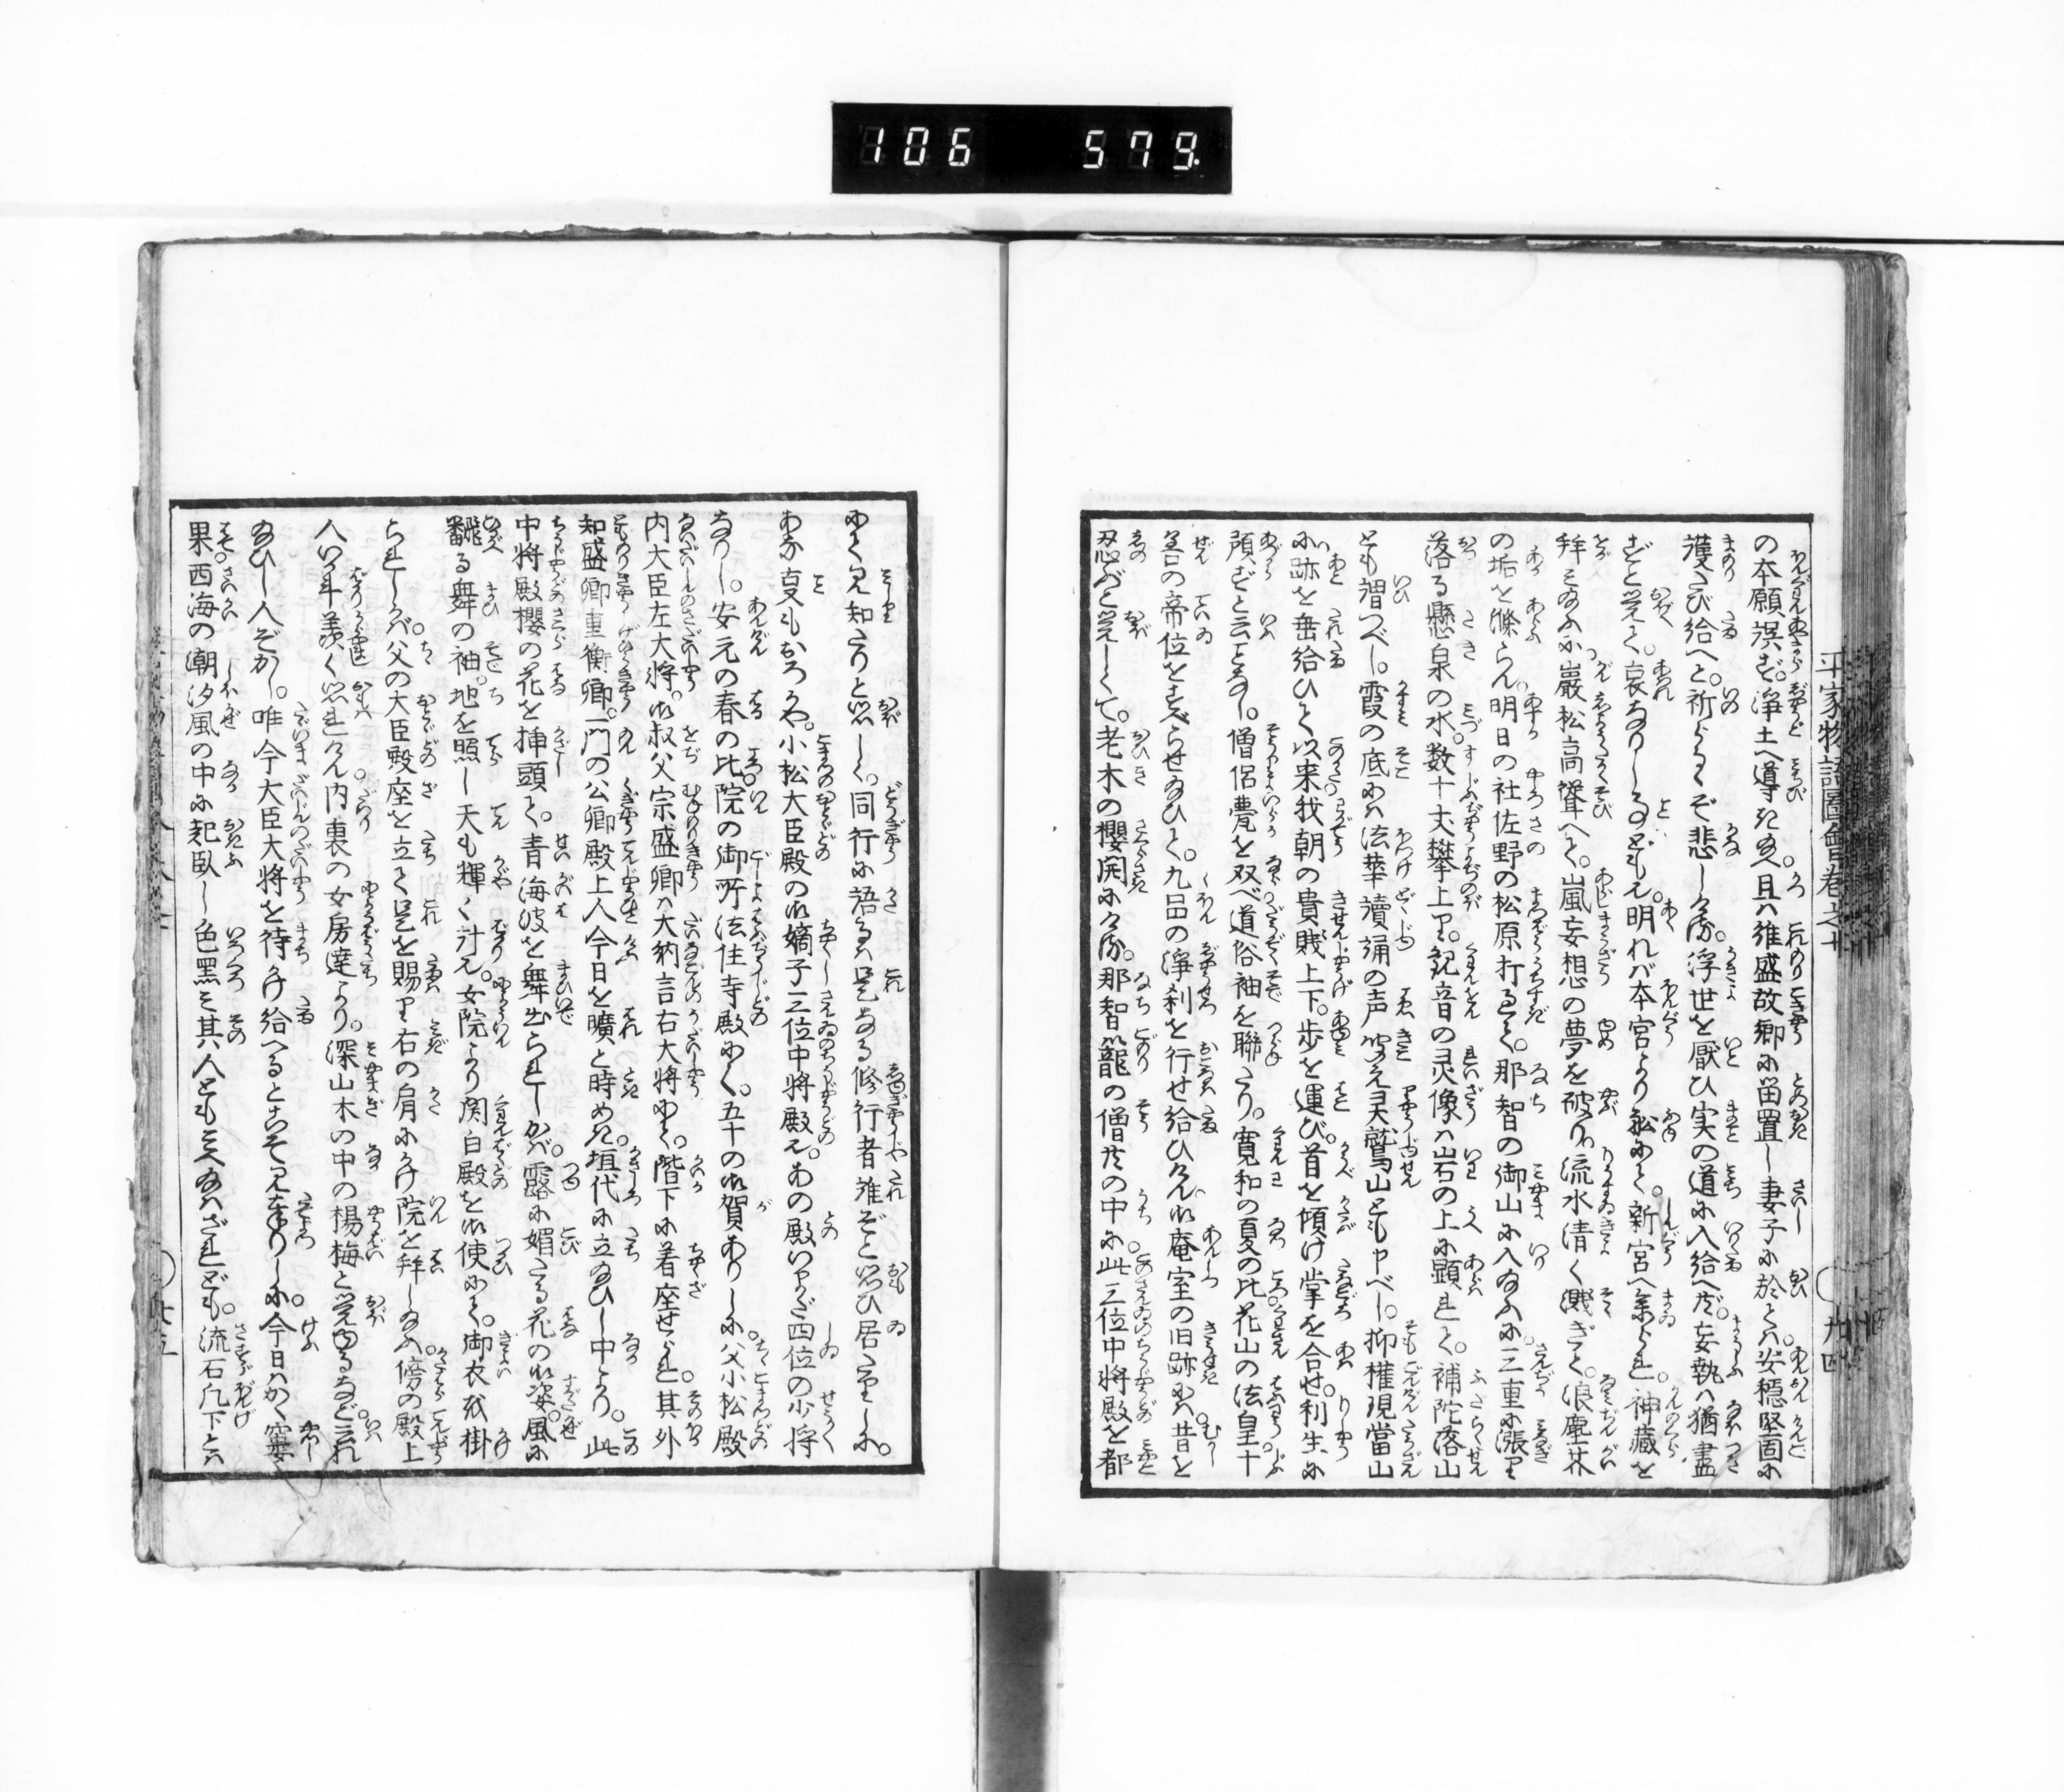 106 579
平家物語圖會巻之十
の本願誤ず。浄土へ導き玉へ。且ハ維盛故郷に留置し妻子に於とハ。安穏堅固に
護たび給へと。祈るぞ悲しける。浮世を厭ひ実の道に入給へ共。妄執ハ猶盡
ずと覚て。哀なりし。明れバ本宮より船にて。新宮へ参られ。神蔵を
拝み給ふに巌松高聳へて。嵐妄想の夢を破り流水清く漑ぎて。浪塵芥
の垢を滌らん。明日の社佐野の松原打過て。那智の御山に入給ふに。三重に漲り
落る懸泉の水。数十丈攀上り。観音の灵像ハ岩の上に顕れて。補陀落山
とも謂つべし。霞の底にハ法華讀誦の声聞え灵鷲山とも申べし。抑權現當山
に跡を垂給ひて以来。我朝の貴賎上下。歩を運び。首を傾け掌を合せ。利生に
預ずと云となし。僧侶甍を双べ道俗袖を聯たり。寛和の夏の比花山の法皇十
善の帝位をすべらせ給ひて。九品の浄刹を行せ給ひけん。御庵室の旧跡にハ。昔を
忍ぶと覚しくて。老木の櫻開にける。那智籠の僧共の中に。此三位中将殿を都
にて見知たりと思しく。同行に語るハ是なる修行者誰ぞと思ひ居たりしに。
あな事もおろかや。小松大臣殿の御嫡子三位中将殿也。あの殿いまだ四位の少将
なりし。安元の春の比。院の御所法住寺殿にて。五十の御賀ありしに。父小松殿
内大臣左大将。御叔父宗盛卿ハ大納言右大将にて。階下に着座せられ。其外
知盛卿重衡卿。一門の公卿殿上人今日を曠と時めき。垣代に立給ひし中より。此
中将殿櫻の花を挿頭て。青海波を舞出られしかバ。露に媚たる花の御姿。風に
飜る舞の袖。地を照し天も輝く計也。女院より関白殿を御使にて。御衣越掛
られしかバ。父の大臣殿座を立て是を賜り右の肩にかけ院を拝し給ふ。傍の殿上
人いか計羨く思れけん。内裏の女房達より。深山木の中の楊梅と覚ゆるなど云れ
給ひし人ぞかし。唯今大臣大将を待かけ給へるとこそ見奉りしに。今日ハかく窶
果。西海の潮汐風の中に起臥し色黒み其人とも見え給ハざれども。流石凡下とハ